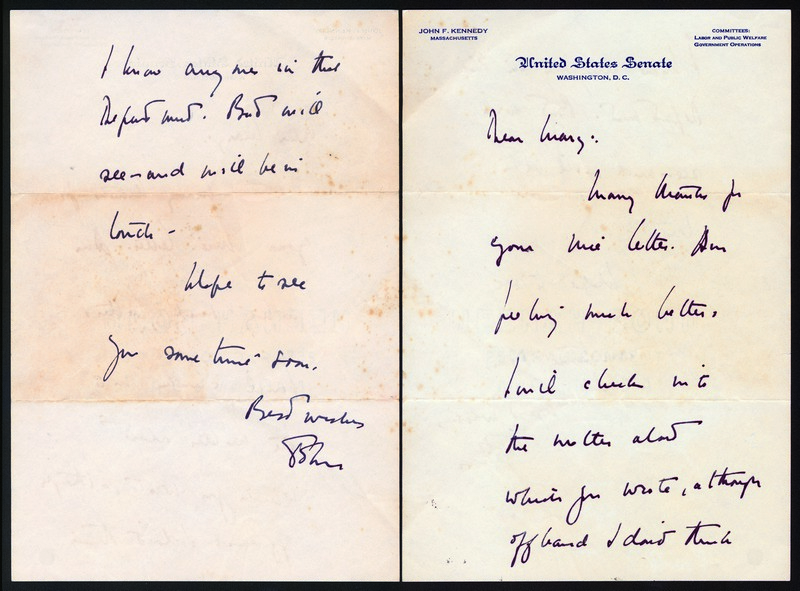 JOHN F. KENNEDY
MASSACHUSETTS
COMMITTEES:
LABOR AND PUBLIC WELFARE
GOVERNMENT OPERATIONS
United States Senate
WASHINGTON, D. C.
Dear Mary:
Many thanks for
your nice letter. Am
feeling much better.
I will check into
the matter about
which you wrote, although
offhand I don't think
I know any one in that
Department. But will
see - and will be in
touch -
Hope to see
you some time soon.
Best wishes
John